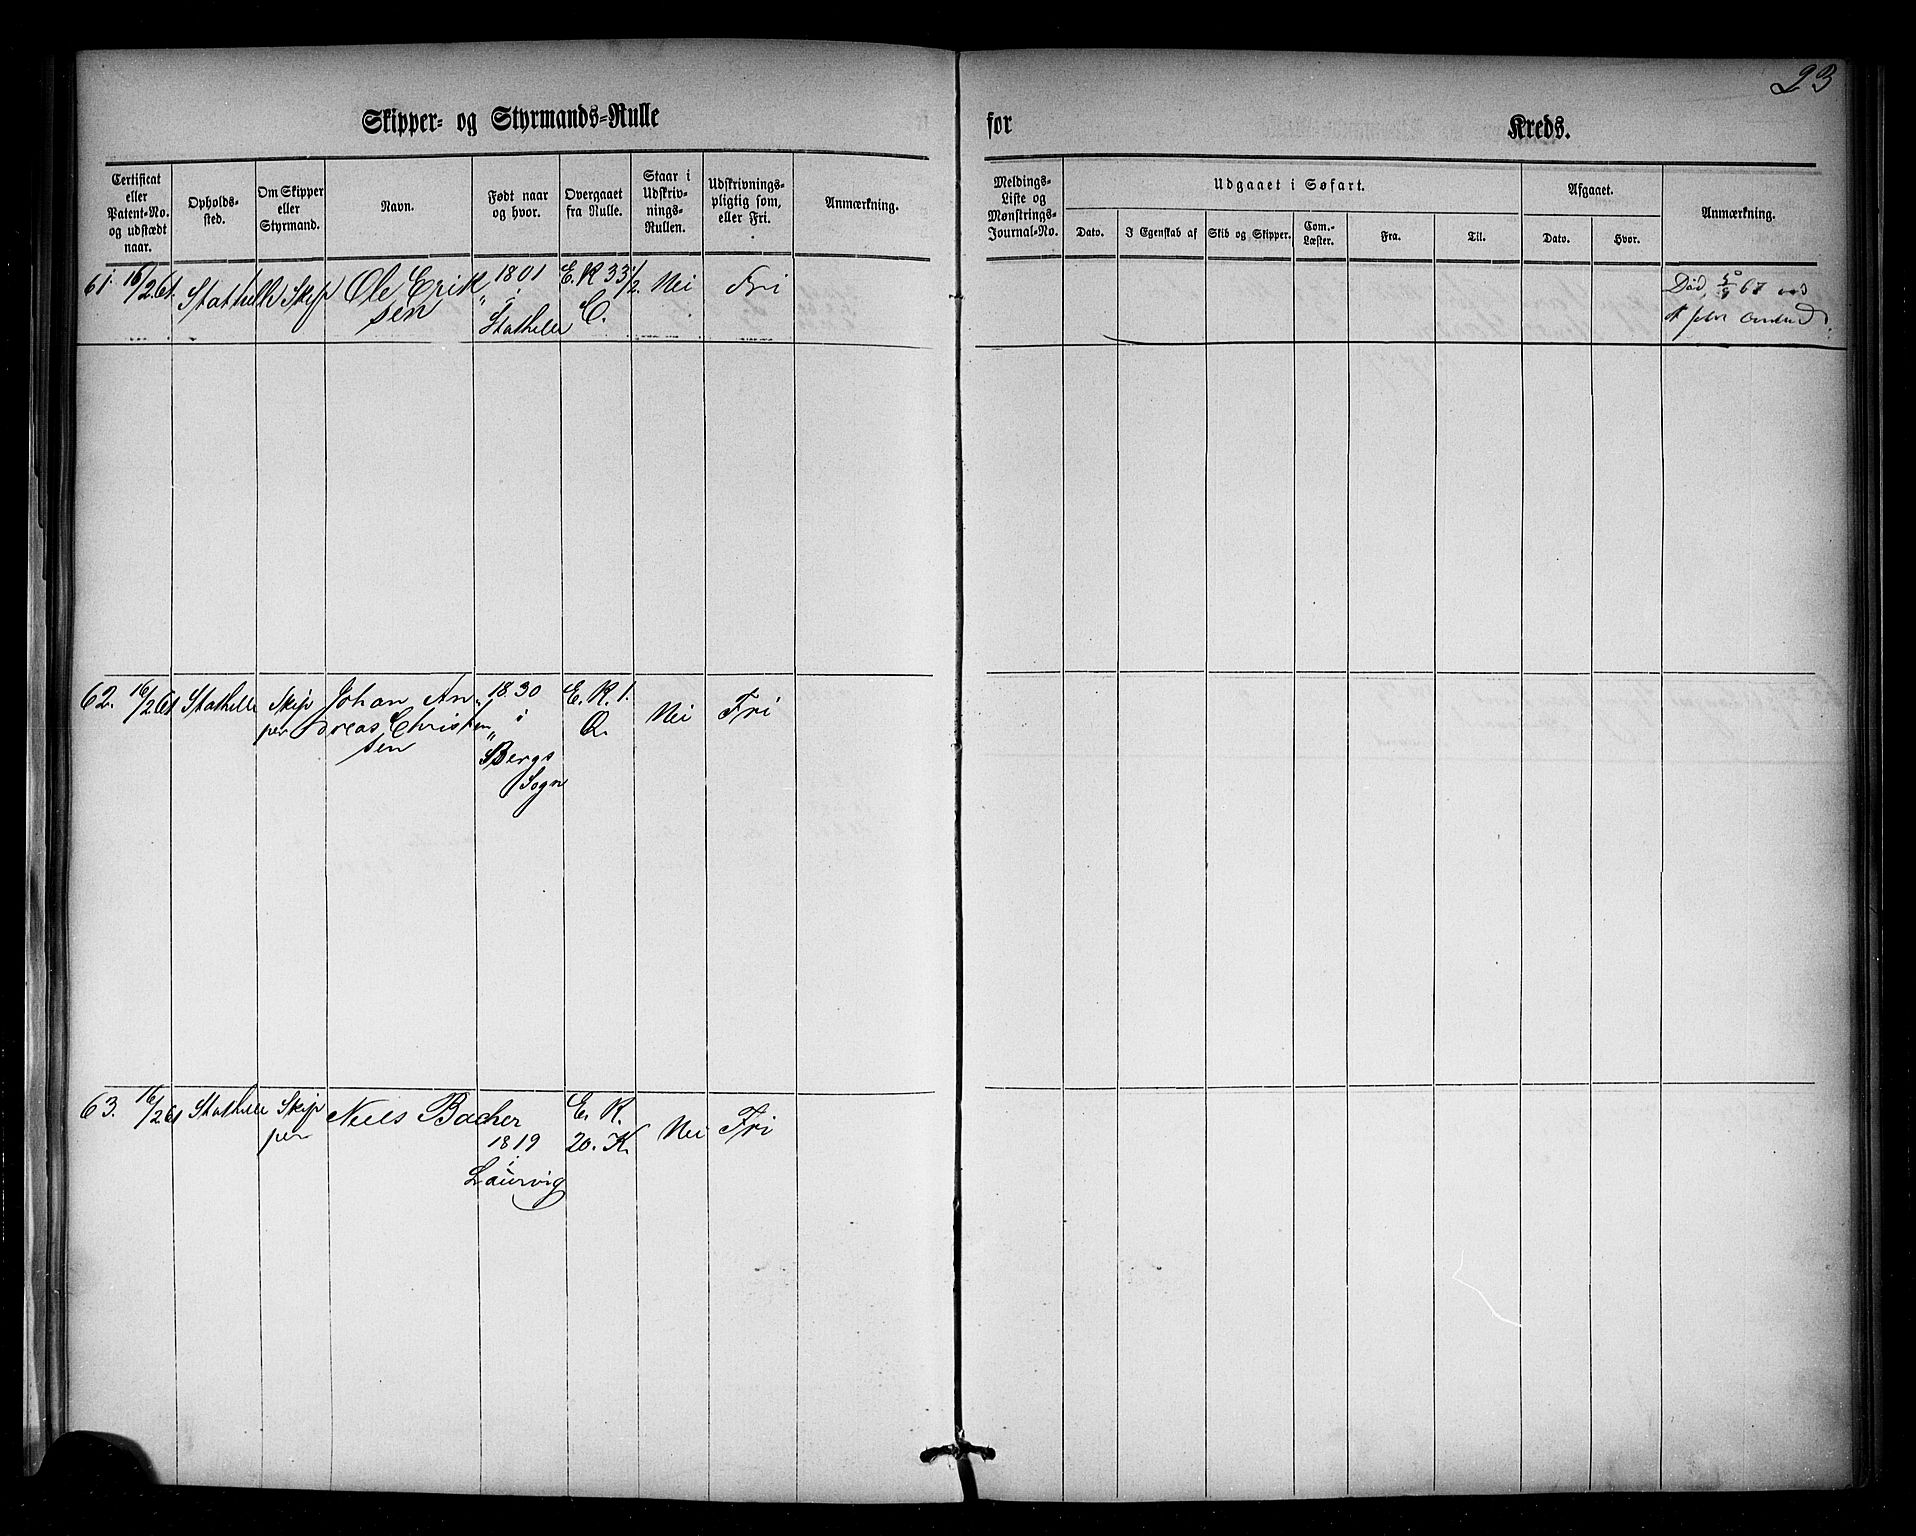 23
Skipper- og Styrmands-Rulle for Kreds.
Certificat eller Patent-No. og udstædt naar.
Opholds-sted.
Om Skipper eller Styrmand.
Navn.
Født naar og hvor.
Overgaaet fra Rulle.
Staar i Udskriv-nings-Rullen.
Udskrivnings-pligtig som, eller Fri.
Anmærkning.
Meldings-Liste og Mønstrings-Journal-No.
Udgaaet i Søfart.
Dato.
I Egenskab af
Skib og Skipper.
Com.-Læster.
Fra.
Til.
Afgaaet.
Dato.
Hvor.
Anmærkning.
61. 16/2 61. Stathelle Skip Ole Erik 1801 E. R 33 1/2. Nei Fri Død 67
"sen i C.
Stathelle
62. 16/2 61 Stathelle Skip Johan An 1830 E. R. 1. Nei Fri
per dreas Christen i Q.
sen " Bergs
Sogn
63. 16/2 61 Stathelle Skip Niels Bacher E. R. Nei Fri
per 1819 20. K.
i
Laurvig